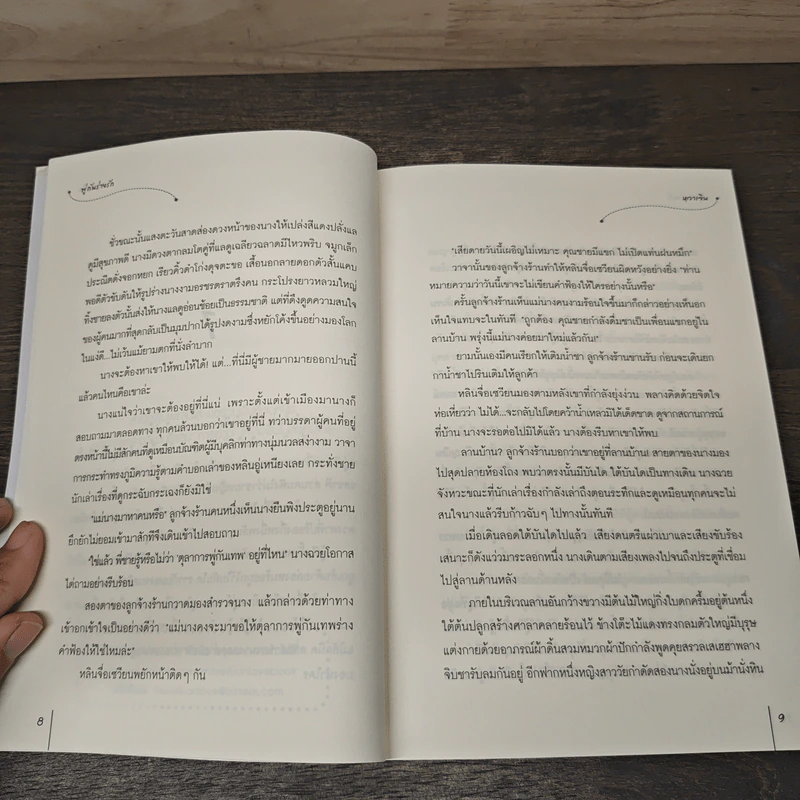 พู่กันร่ายรัก
ชั่วขณะนั้นแสงตะวันสาดส่องดวงหน้าของนางให้เปล่งสีแดงปลั่งแล
ดูมีสุขภาพดี นางมีดวงตากลมโตคู่ที่แลดูเฉลียวฉลาดมีไหวพริบ จมูกเล็ก
ประณีตดั่งจอกหยก เรียวคิ้วดำโก่งดุจตะขอ เสื้อนอกลายดอกตัวสั้นแคบ
พอดีตัวขับดันให้รูปร่างนางงามอรชรตราตรึงคน กระโปรงยาวหลวมใหญ่
ทิ้งชายลงตัวนั้นส่งให้นางแลดูอ่อนช้อยเป็นธรรมชาติ แต่ที่ดึงดูดความสนใจ
ของผู้คนมากที่สุดกลับเป็นมุมปากได้รูปงดงามซึ่งหยักโค้งขึ้นอย่างมองโลก
ในแง่ดี...ไม่เว้นแม้ยามตกที่นั่งลำบาก
นางจะต้องหาเขาให้พบให้ได้! แต่...ที่นี่มีผู้ชายมากมายออกปานนี้
แล้วคนไหนคือเขาล่ะ
นางแน่ใจว่าเขาจะต้องอยู่ที่นี่แน่ เพราะตั้งแต่เข้าเมืองมานางก็
สอบถามมาตลอดทาง ทุกคนล้วนบอกว่าเขาอยู่ที่นี่ ทว่าบรรดาผู้คนที่อยู่
ตรงหน้านี้ไม่มีสักคนที่ดูเหมือนบัณฑิตผู้มีบุคลิกท่าทางนุ่มนวลสง่างาม วาจา
การกระทำทรงภูมิความรู้ตามคำบอกเล่าของหลินอู่เหนียงเลย กระทั่งชาย
นักเล่าเรื่องที่ดูกระฉับกระเฉงก็ยังมิใช่
"แม่นางมาหาคนหรือ" ลูกจ้างร้านคนหนึ่งเห็นนางยืนพิงประตูอยู่นาน
ยึกยักไม่ยอมเข้ามาสักทีจึงเดินเข้าไปสอบถาม
"ใช่แล้ว พี่ชายรู้หรือไม่ว่า 'ตุลาการพู่กันเทพ' อยู่ที่ไหน" นางฉวยโอกาส
ไต่ถามอย่างรีบร้อน
สองตาของลูกจ้างร้านกวาดมองสำรวจนาง แล้วกล่าวด้วยท่าทาง
เข้าอกเข้าใจเป็นอย่างดีว่า "แม่นางคงจะมาขอให้ตุลาการพู่กันเทพร่าง
คำฟ้องให้ใช่ไหมล่ะ"
หลินจื่อเซวียนพยักหน้าติดๆ กัน
8
หวารงจิน
"เสียดายวันนี้เผอิญไม่เหมาะ คุณชายมีแขก ไม่เปิดแท่นฝนหมึก"
วาจานั้นของลูกจ้างร้านทำให้หลินจื่อเซวียนผิดหวังอย่างยิ่ง "ท่าน
หมายความว่าวันนี้เขาจะไม่เขียนคำฟ้องให้ใครอย่างนั้นหรือ"
ครั้นลูกจ้างร้านเห็นแม่นางคนงามร้อนใจขึ้นมาก็กล่าวอย่างเห็นอก
เห็นใจแทบจะในทันที "ถูกต้อง คุณชายกำลังดื่มชาเป็นเพื่อนแขกอยู่ใน
ลานบ้าน พรุ่งนี้แม่นางค่อยมาใหม่แล้วกัน!"
ยามนั้นเองมีคนเรียกให้เติมน้ำชา ลูกจ้างร้านขานรับ ก่อนจะเดินยก
กาน้ำชาไปรินเติมให้ลูกค้า
หลินจื่อเซวียนมองตามหลังเขาที่กำลังยุ่งง่วน พลางคิดด้วยจิตใจ
ห่อเหี่ยวว่า ไม่ได้...จะกลับไปโดยคว้าน้ำเหลวมิได้เด็ดขาด ดูจากสถานการณ์
ที่บ้าน นางจะรอต่อไปมิได้แล้ว นางต้องรีบหาเขาให้พบ
ลานบ้าน? ลูกจ้างร้านบอกว่าเขาอยู่ที่ลานบ้านนี่! สายตาของนางมอง
ไปสุดปลายห้องโถง พบว่าตรงนั้นมีบันได ใต้บันไดเป็นทางเดิน นางฉวย
จังหวะขณะที่นักเล่าเรื่องกำลังเล่าถึงตอนระทึกและดูเหมือนทุกคนจะไม่
สนใจนางแล้วรีบก้าวฉับๆ ไปทางนั้นทันที
เมื่อเดินลอดใต้บันไดไปแล้ว เสียงดนตรีแผ่วเบาและเสียงขับร้อง
เสนาะก็ดังแว่วมาระลอกหนึ่ง นางเดินตามเสียงเพลงไปจนถึงประตูที่เชื่อม
ไปสู่ลานด้านหลัง
ภายในบริเวณลานอันกว้างขวางมีต้นไม้ใหญ่กิ่งใบดกครึ้มอยู่ต้นหนึ่ง
ใต้ต้นปลูกสร้างศาลาคลายร้อนไว้ ข้างโต๊ะไม้แดงทรงกลมตัวใหญ่มีบุรุษ
แต่งกายด้วยอาภรณ์ผ้าดิ้นสวมหมวกผ้าปักกำลังพูดคุยสรวลเสเฮฮาพลาง
จิบชารับลมกันอยู่ อีกฟากหนึ่งหญิงสาววัยกำดัดสองนางนั่งอยู่บนม้านั่งหิน
9